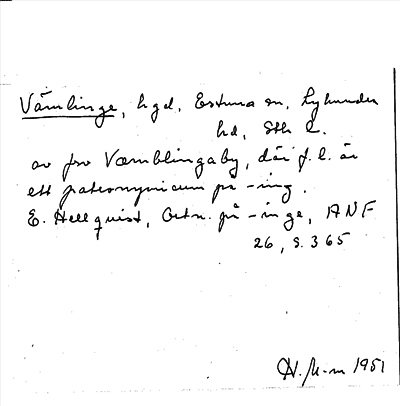 Vämlinge, hgd, Estuna sn, Lyhundra
hd, Sth l.
av fsv Væmblingaby, där f.l. är
ett patronymicum på -ing.
E. Hellquist, Ortn. på -inge, ANF
26, s. 365
H. M-m 1951